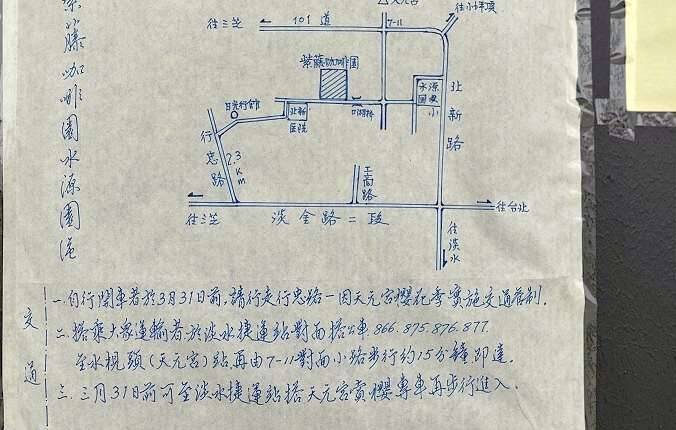 紫藤咖啡園水源園區
天元宮
往小坪頂
往三芝
101道
7-11
紫藤咖啡園
水源國小
北新路
日光行館
北新醫院
行忠路
2.3km
工商路
往三芝
淡金路二段
往台北
往淡水
交通
一.自行開車者於3月31日前,請行走行忠路－因天元宮櫻花季實施交通管制.
二.搭乘大眾運輸者於淡水捷運站對面搭公車866.875.876.877.
至水梘頭(天元宮)站,再由7-11對面小路步行約15分鐘即達.
三.三月31日前可至淡水捷運站搭天元宮賞櫻專車再步行進入.